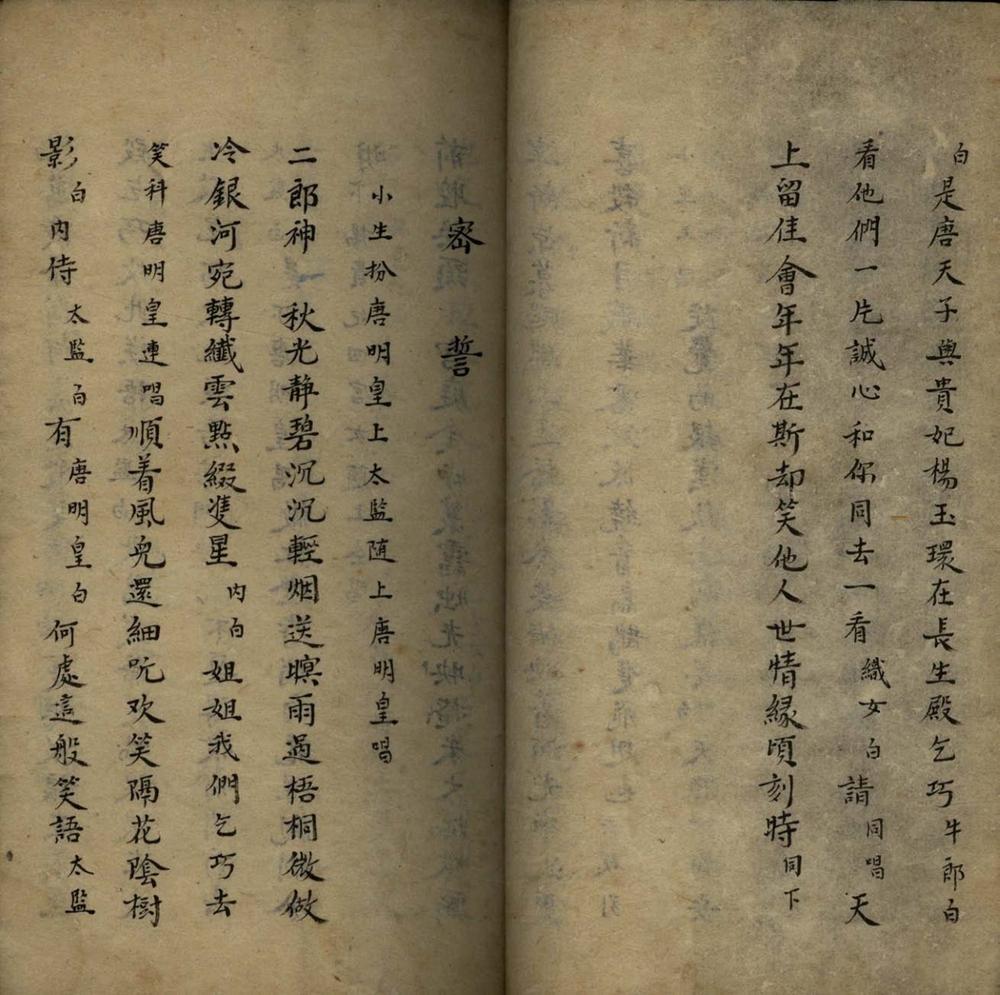 白是唐天子與貴妃楊玉環在長生殿乞巧牛郎白
看他們一片誠心和你同去一看織女白請同唱天
上留佳會年年在斯却笑他人世情緣頃刻時同下
密誓
小生扮唐明皇上太監随上唐明皇唱
二郎神秋光静碧沉沉輕烟送暝雨過梧桐微做
冷銀河宛轉纖雲點綴隻星内白姐姐我們乞巧去
笑科唐明皇連唱順着風兒還細吮欢笑隔花陰樹
影白内侍太監白有唐明皇白何處這般笑語太監